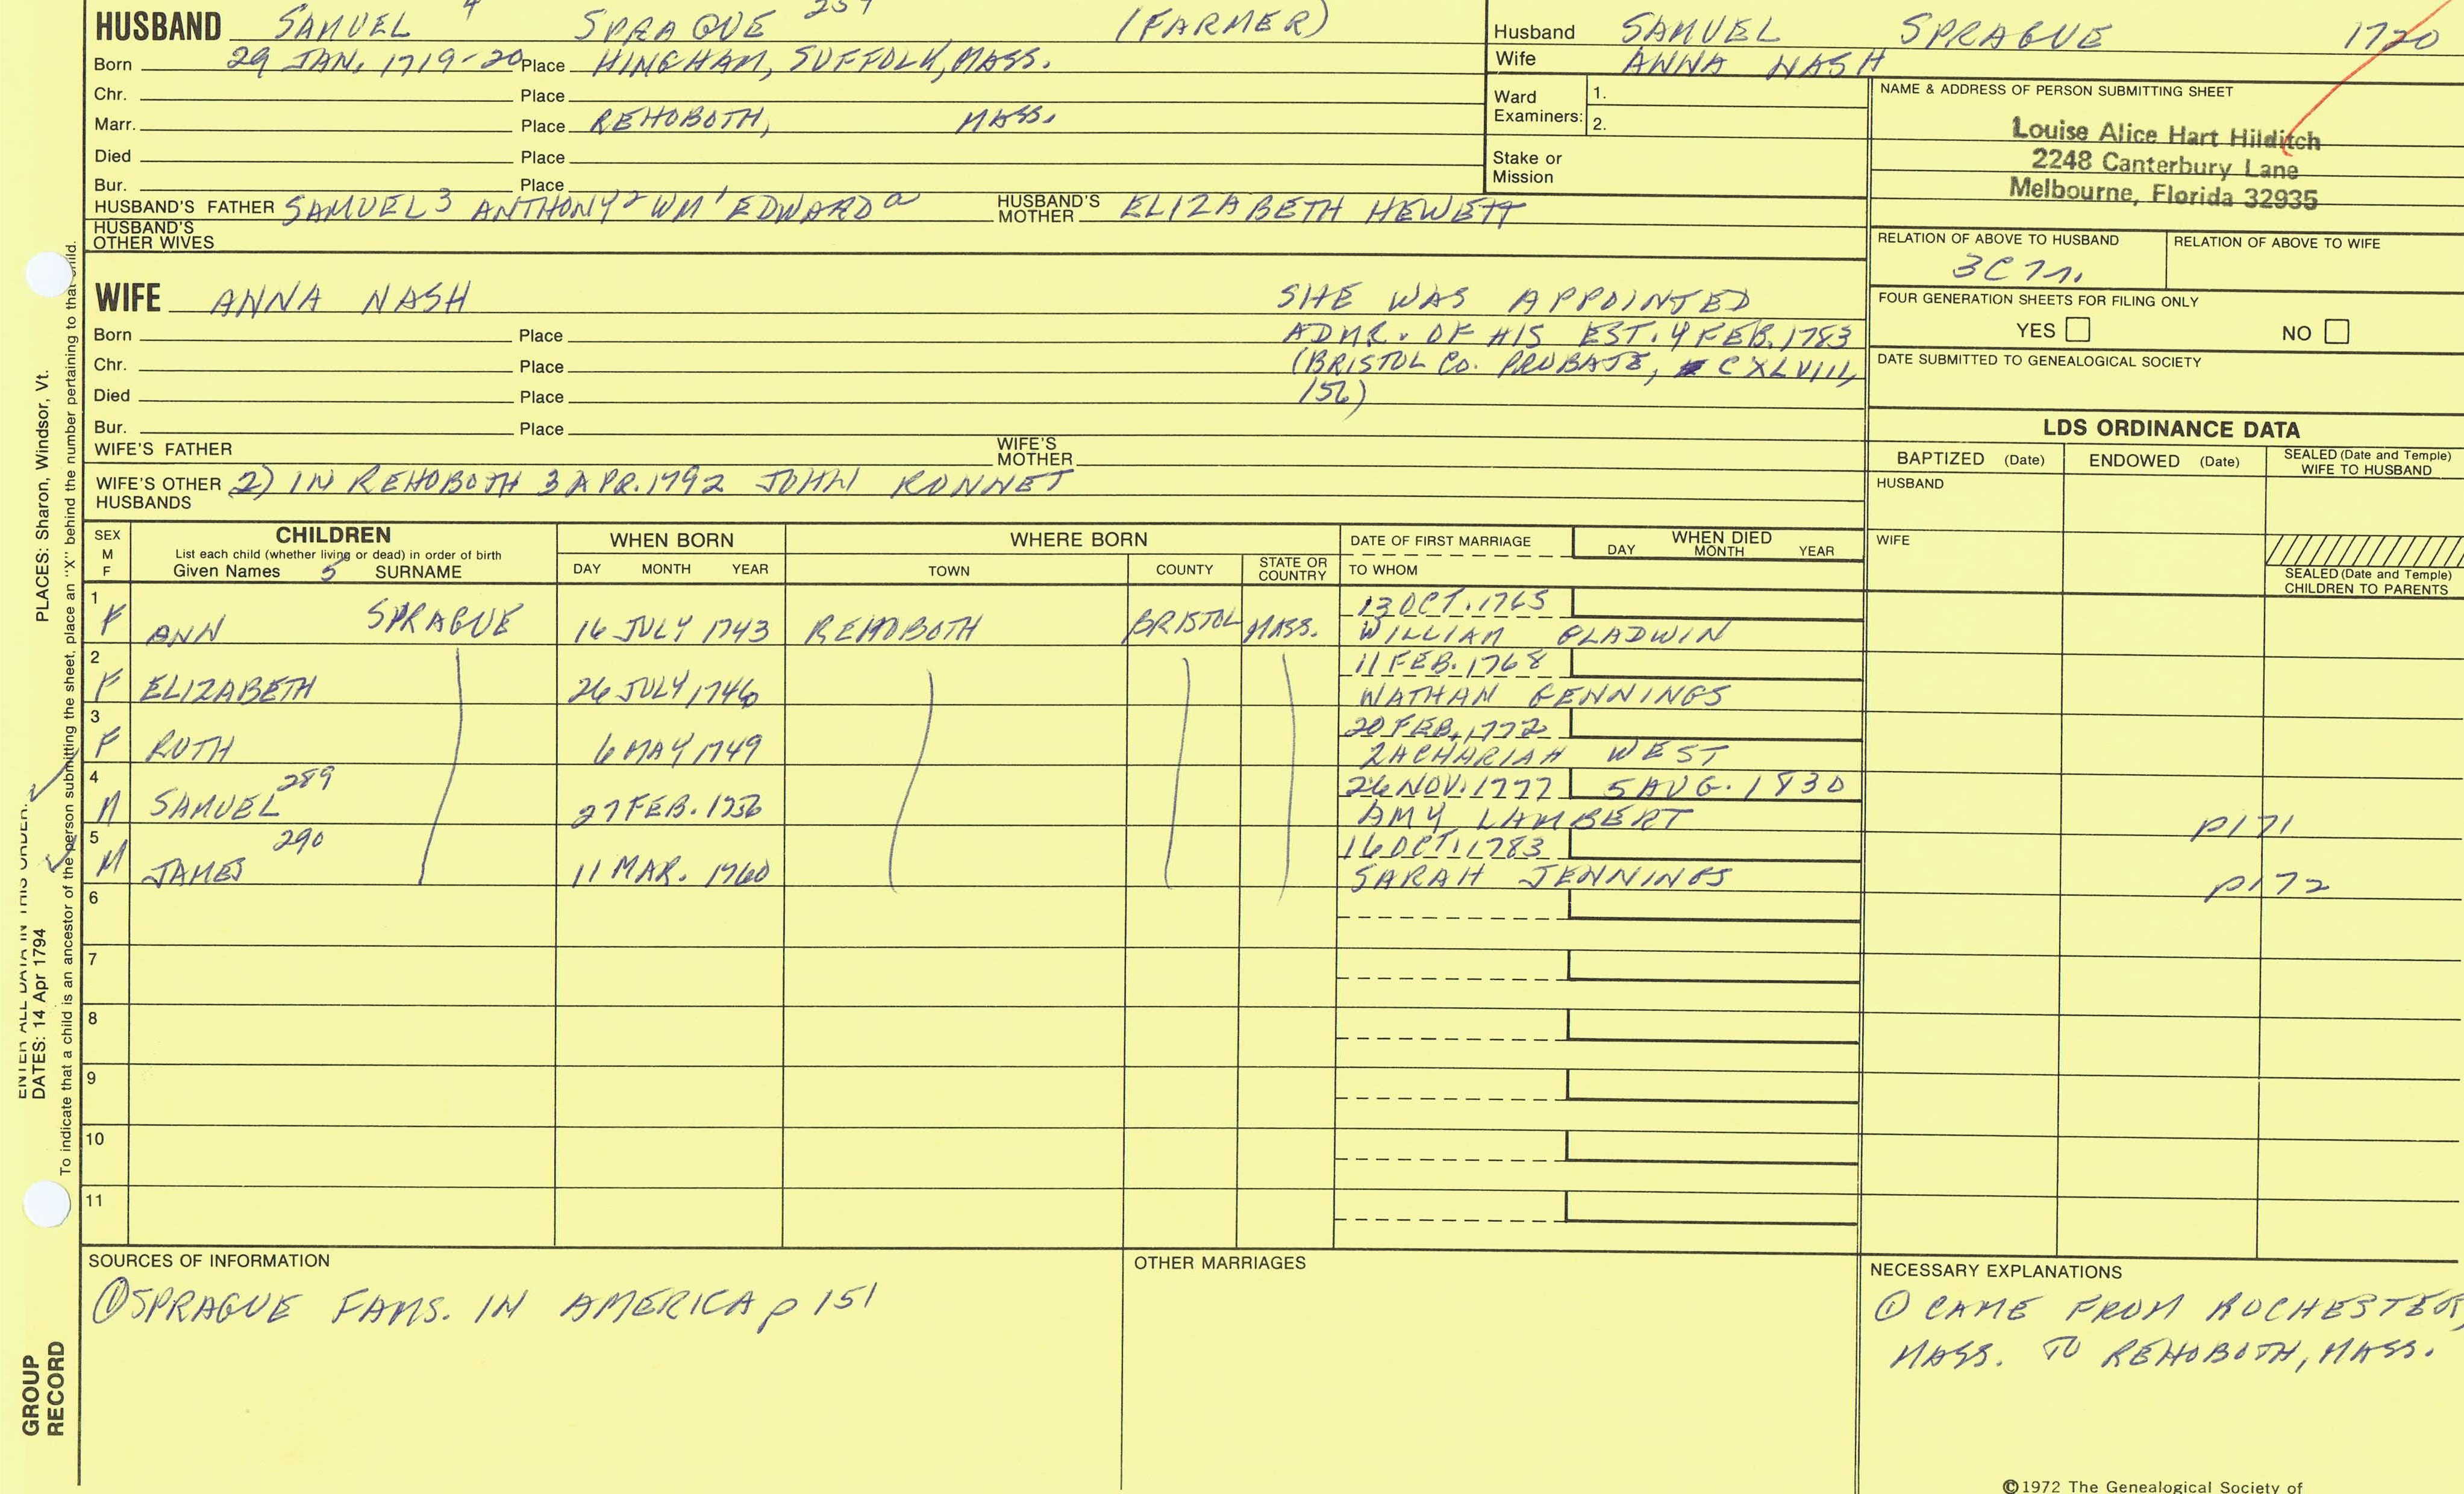 HUSBAND SAMUEL 4 SPRAGUE (FARMER)
Born 29 JAN. 1719-20 Place HINGHAM, SUFFOLK, MASS.
Chr. Place
Marr. Place REHOBOTH, MASS.
Died Place
Bur. Place
HUSBAND'S FATHER SAMUEL3 ANTHONY2 WM1 EDWARDa HUSBAND'S MOTHER ELIZABETH HEWETT
HUSBAND'S OTHER WIVES
Husband SAMUEL SPRAGUE 1720
Wife ANNA NASH
Ward Examiners: 1.
2.
Stake or Mission
NAME & ADDRESS OF PERSON SUBMITTING SHEET
Louise Alice Hart Hilditch
2248 Canterbury Lane
Melbourne, Florida 32935
RELATION OF ABOVE TO HUSBAND RELATION OF ABOVE TO WIFE
FOUR GENERATION SHEETS FOR FILING ONLY
YES NO
DATE SUBMITTED TO GENEALOGICAL SOCIETY
WIFE ANNA NASH
SHE WAS APPOINTED
ADMR. OF HIS EST. 4 FEB. 1783
(BRISTOL CO. PROBATE, CXLVIII,
156)
Born Place
Chr. Place
Died Place
Bur. Place
WIFE'S FATHER WIFE'S MOTHER
WIFE'S OTHER HUSBANDS 2) IN REHOBOTH 3 APR. 1792 JOHN RONNET
LDS ORDINANCE DATA
BAPTIZED (Date) ENDOWED (Date) SEALED (Date and Temple) WIFE TO HUSBAND
HUSBAND
WIFE
SEALED (Date and Temple) CHILDREN TO PARENTS
SEX M F
CHILDREN
List each child (whether living or dead) in order of birth
Given Names 5 SURNAME
WHEN BORN
DAY MONTH YEAR
WHERE BORN
TOWN COUNTY STATE OR COUNTRY
DATE OF FIRST MARRIAGE
TO WHOM
WHEN DIED
DAY MONTH YEAR
1 F ANN SPRAGUE 16 JULY 1743 REHOBOTH BRISTOL MASS. 13 OCT. 1765
WILLIAM GLADWIN
2 F ELIZABETH 26 JULY 1746 11 FEB. 1768
NATHAN GENNINGS
3 F RUTH 6 MAY 1749 20 FEB. 1772
ZACHARIAH WEST
4 M SAMUEL 289 27 FEB. 1756 26 NOV. 1777 5 AUG. 1830
AMY LAMBERT p171
5 M JAMES 290 11 MAR. 1760 16 OCT. 1783
SARAH JENNINGS p172
6
7
8
9
10
11
SOURCES OF INFORMATION
① SPRAGUE FAMS. IN AMERICA p 151
OTHER MARRIAGES
NECESSARY EXPLANATIONS
① CAME FROM ROCHESTER,
MASS. TO REHOBOTH, MASS.
©1972 The Genealogical Society of
PLACES: Sharon, Windsor, Vt.
ENTER ALL DATA IN THIS ORDER:
DATES: 14 Apr 1794
To indicate that a child is an ancestor of the person submitting the sheet, place an "X" behind the number pertaining to that child.
GROUP
RECORD